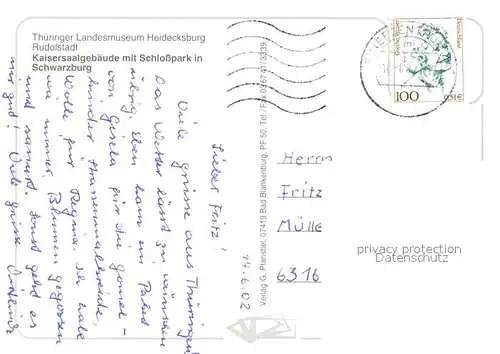 Thüringer Landesmuseum Heidecksburg
Rudolstadt
Kaisersaalgebäude mit Schloßpark in
Schwarzburg
14.6.02
Lieber Fritz!
Viele Grüsse aus Thüringen!
Das Wetter lässt zu wünschen
übrig. Eben kam ein Paket
von Gisela für die
Wolle für Regina. Ich habe
wie immer Blumen gegossen
und sonst geht es
mir gut! Viele Grüsse
Verlag G. Planstiel, 07419 Bad Blankenburg, PF 50, Tel./Fax 036741/3339
Deutschland
100
0,51€
Herrn
Fritz
Mülle
6316
privacy protection
Datenschutz